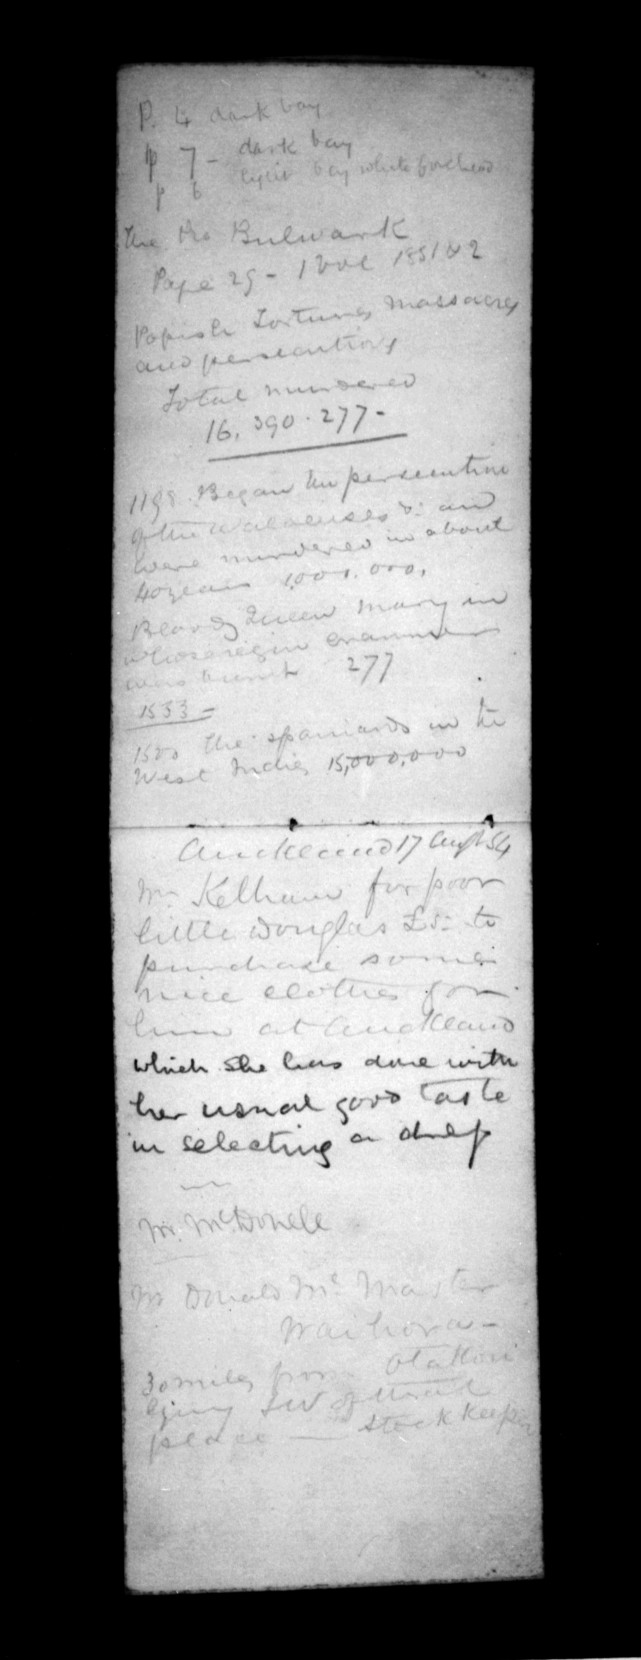 P. 4 dark bay
p 7 - dark bay
p 6 light bay white forehead
The Bulwark
Page 29 - 1 Vol 1851 & 2
Popish Tortures Massacres
and persecutions
Total murdered
16,390.277-
Began the persecution
of the Waldenses & and
were murdered in about
40 years 1,000.000,
Bloody Queen Mary in
whose reign
was burnt 277
1553 -
1500 the spaniards in the
West Indies 15,000,000
Auckland 17 Augt 54
Mrs Kelham for poor
little Douglas £5 to
purchase some
nice clothes for
him at Auckland
which she has done with
her usual good taste
in selecting a dress
Mr. McDonell
Mr Donald Mc Master
Waihora -
30 miles from
lying SW of that
place — Stock Keeper